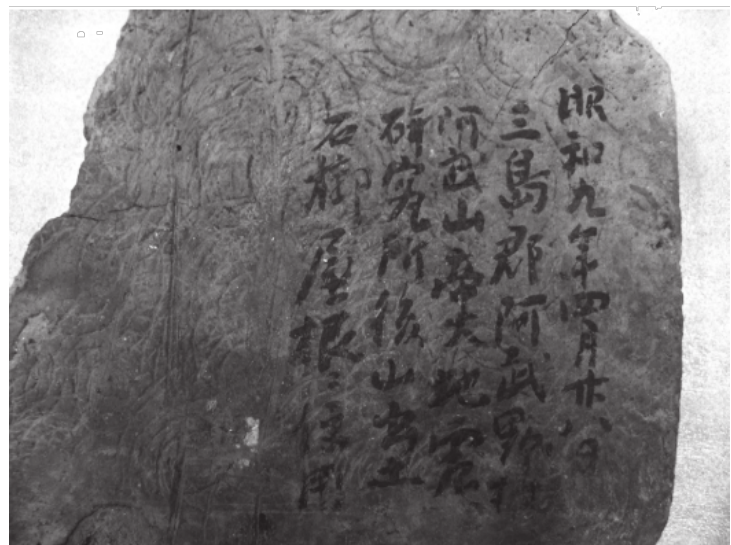 昭和九年四月廿八日
三島郡阿武野村
阿武山帝大地震
研究所後山出土
石槨屋根ニ使用